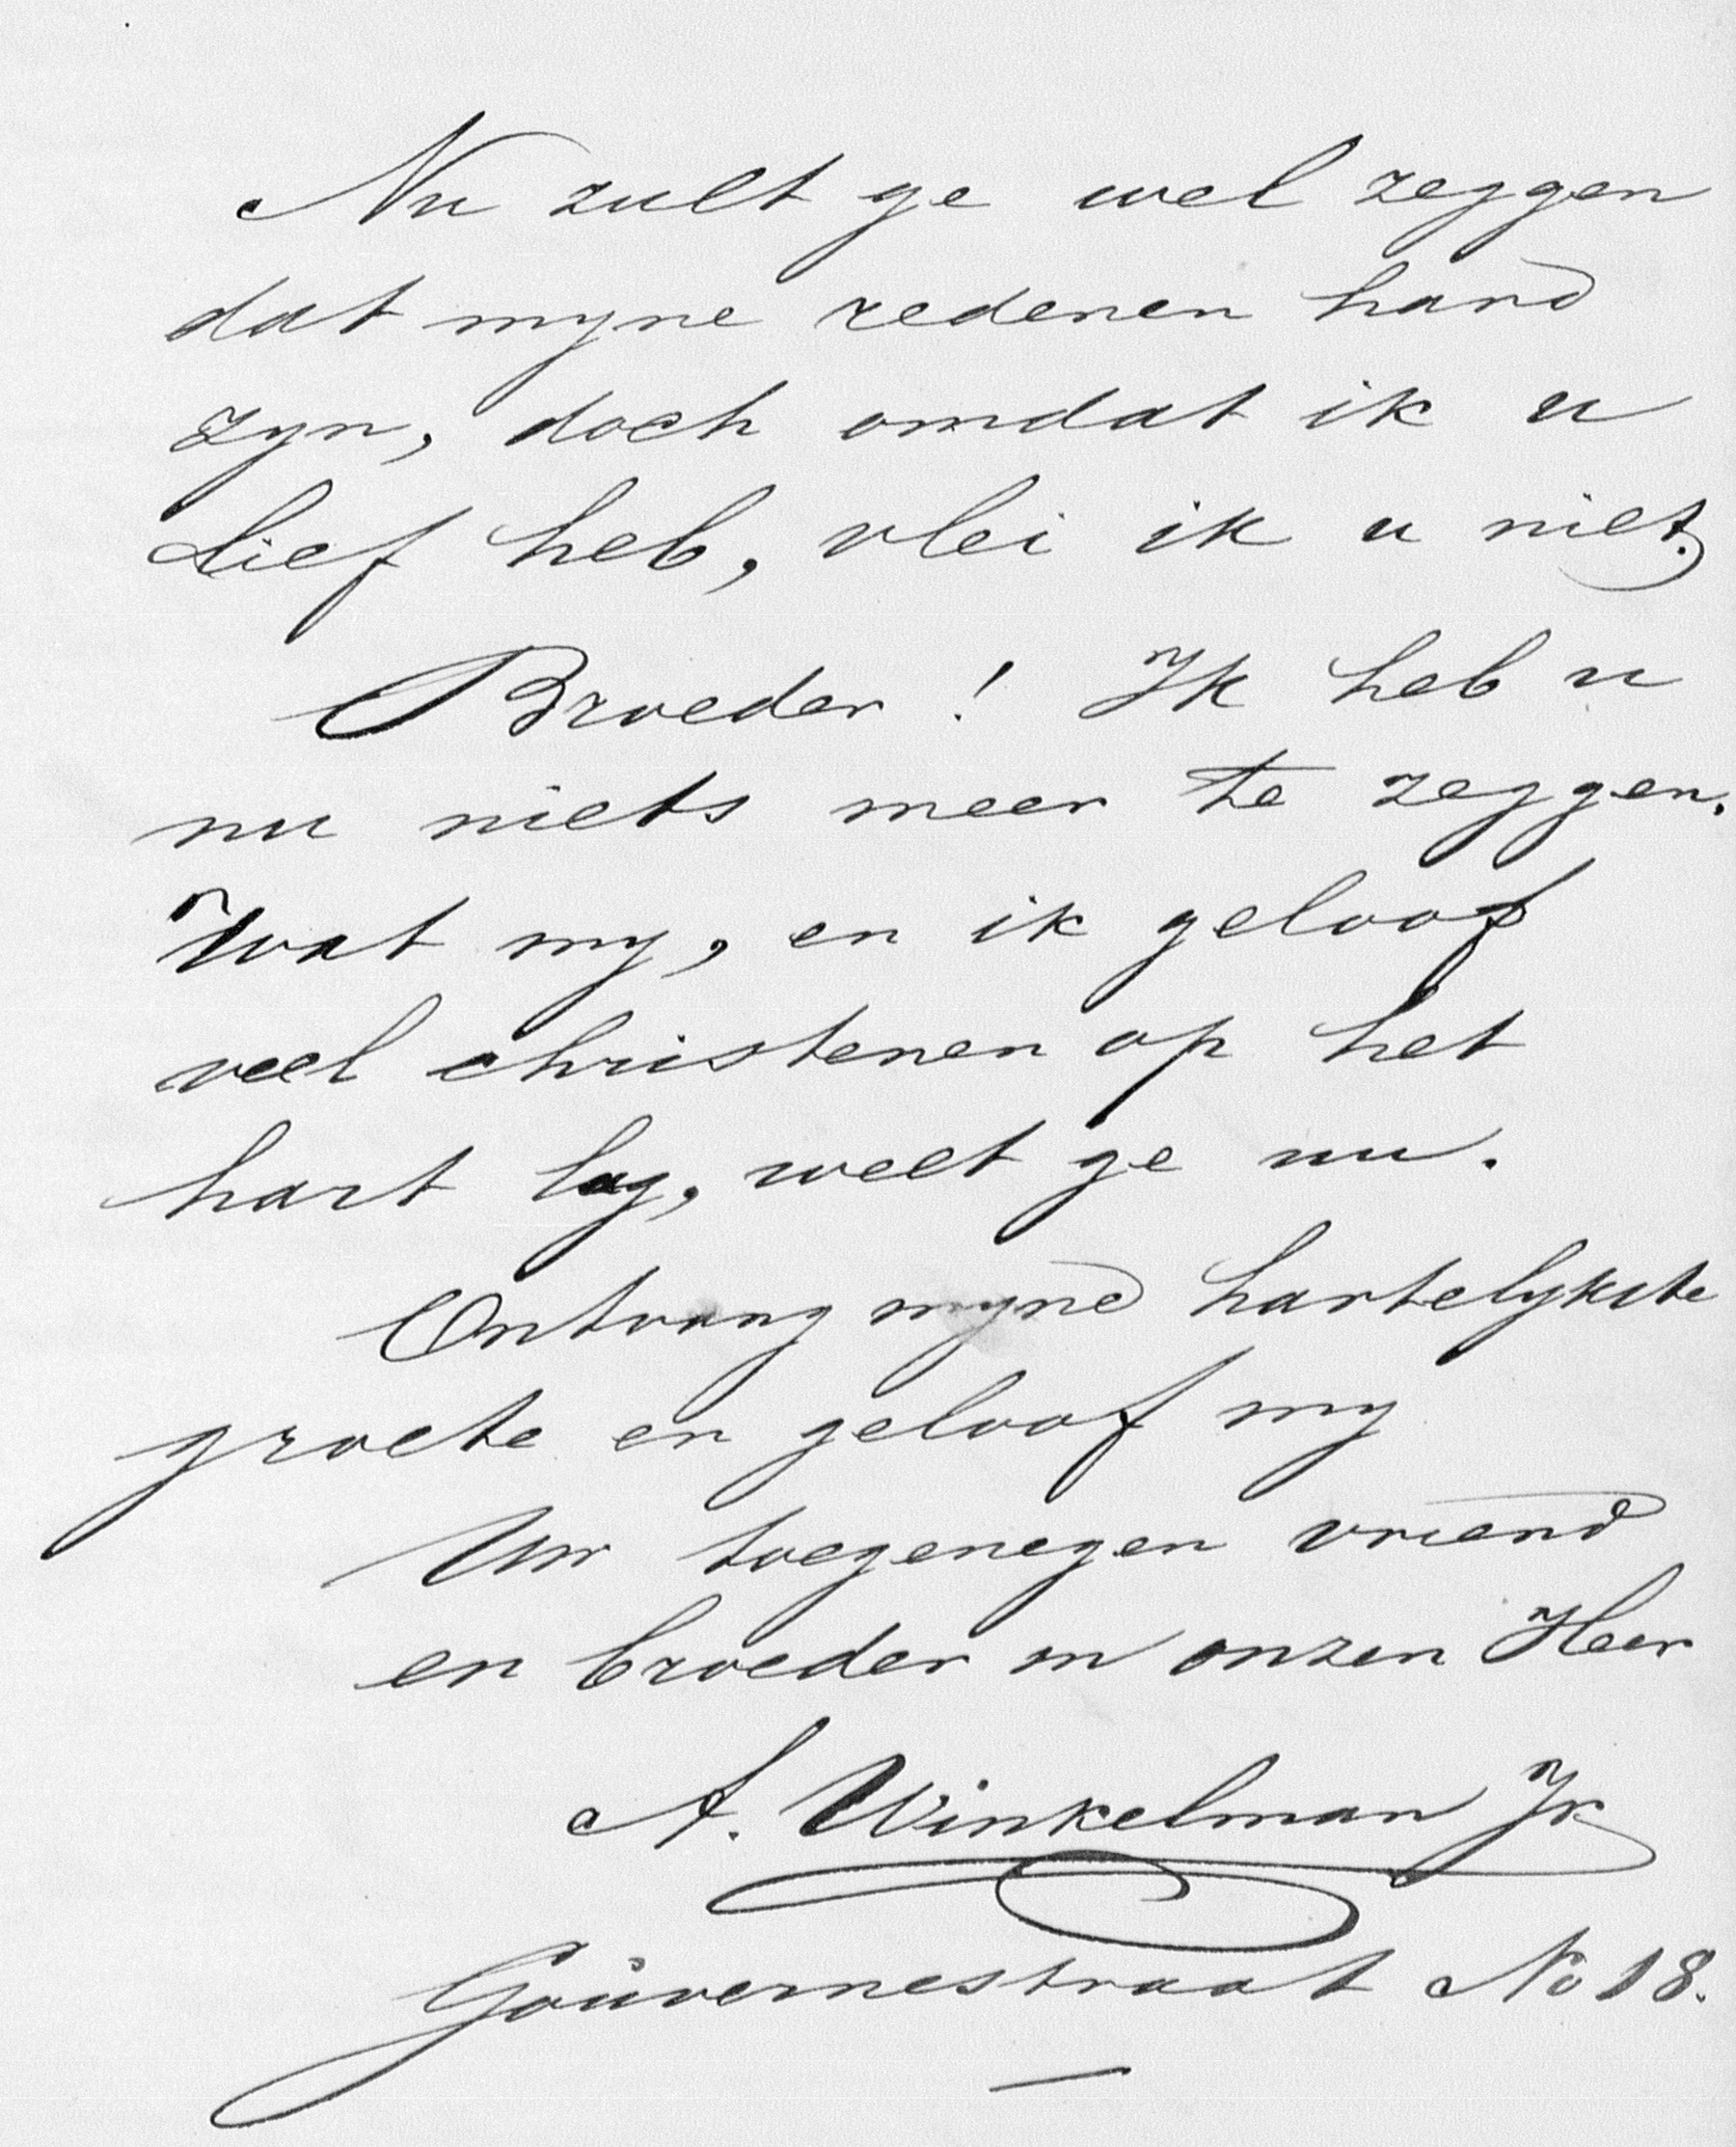 Nu zult ge wel zeggen
dat myne redenen hard
zyn, doch omdat ik u
lief heb, vlei ik u niet.
Broeder! Ik heb u
nu niets meer te zeggen.
Wat my, en ik geloof
veel christenen op het
hart lag, weet ge nu.
Ontvang myne hartelykste
groete en geloof my
Uw toegenegen vriend
en broeder in onzen Heer
A. Winkelman Jr
Gouvernestraat No 18.